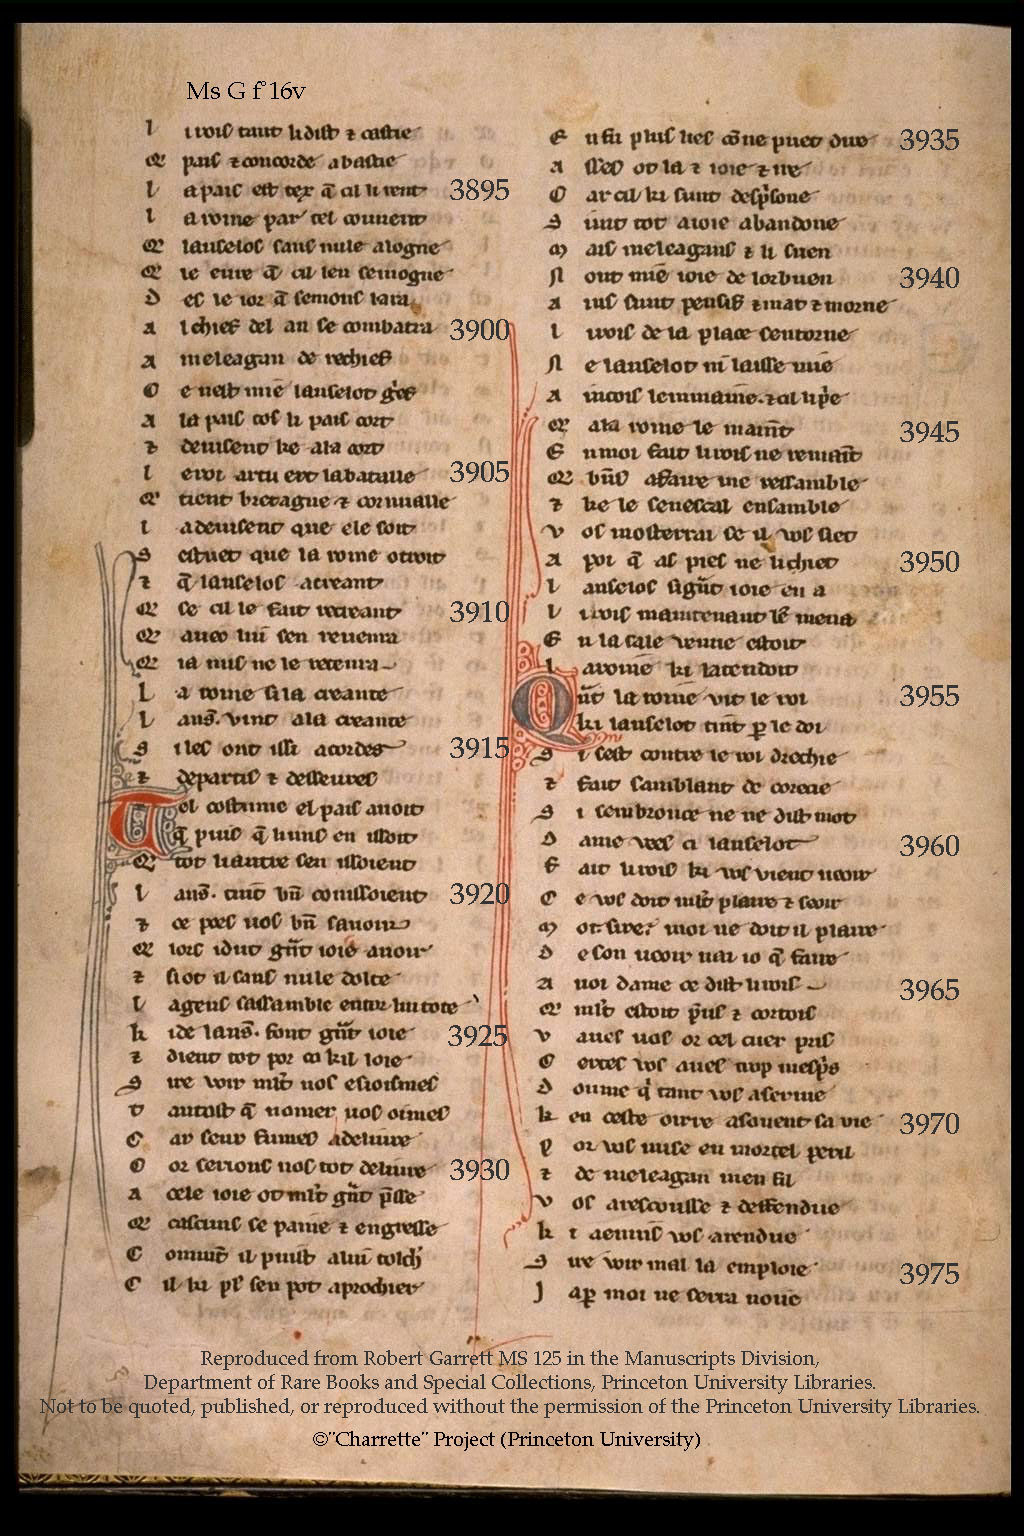 Ms G f°16v
L i rois tant li dist ⁊ castie
Q̃ pais ⁊ concorde a bastie
L a pais est tex q̄ cil li rent 3895
L a roine par tel couuent
Q̃ lanselos sans nule alogne
Q̃ le eure q̄ cil len semogne
D es le ior q̄ semons lara
A l chief del an se combatra 3900
A meleagan de rechief
C e nest miē lanselot gͥef
A la pais tos li pais cort
⁊ deuisent ke a la cort
L e roi artu ert la bataille 3905
Q̃ tient bretagne ⁊ cornualle
L a deuisent que ele soit
S estuet que la roine otroit
⁊ q̄ lanselos acreant
Q̃ se cil le fait recreant 3910
Q̃ auec lui sen reuenra
Q̃ ia nus ne le retenra
L a roine si la creante
L ans̄. vint a la creante
S i les ont issi acordes 3915
⁊ departis ⁊ desseures
Tel costume el pais auoit
q̄ puis q̄ li uns en issoit
Q̃ tot li autre sen issoient
L ans̄. tint bn̄ conissoient 3920
⁊ ce poes uos bn̄ sauoir
Q̃ lors idut gn̄t ioie auoir
⁊ si ot il sans nule dolte
L a gens sassamble entor lui tote
K i de lans̄. font gn̄t ioie 3925
⁊ dient tot por ce kil loie
S ire voir ml̄t nos esioismes
T antost q̄ nomer uos oimes
C ar seur fumes a deliure
C or serions nos tot deliure 3930
A cele ioie ot ml̄t gn̄t p̄sse
Q̃ cascuns se paine ⁊ engresse
C omm̄t il puist a lui tolch̄
C il ki pl̄ sen pot aprochier
E n fu plus lies cōne puet dire 3935
A sses ot la ⁊ ioie ⁊ ire
C ar cil ki sunt despͥsone
S unt tot a ioie abandone
M ais meleagans ⁊ li suen
N ont miē ioie de lor buen 3940
A ins sunt pensif ⁊ mat ⁊ morne
L i rois de la place sentorne
N e lanselot ni laisse mie
A incois lenmaine. ⁊ cil li pͥe
Q̃ a la roine le maint 3945
E n moi fait li rois ne remaint
Q̃ bn̄s a faire me ressamble
⁊ ke le senescal ensamble
V os mosterrai se il uos siet
A poi q̄ as pies ne li chiet 3950
L anselos si gn̄t ioie en a
L i rois maintenant lē mena
E n la sale venue estoit
L a roine ki latendoit
Qn̄t la roine vit le roi 3955
ki lanselot tint ꝑ le doi
S i sest contre le roi drechie
⁊ fait samblant de corcie
S i senbronce ne ne dist mot
D ame vees ci lanselot 3960
F ait li rois ki uos vient ueoir
C e uos doit ml̄t plaire ⁊ seoir
M oi. sire? moi ne doit il plaire
D e son ueoir nai io q̄ faire
A uoi dame ce dist li rois 3965
Q̃ ml̄t estoit pͥus ⁊ cortois
V aues uos or cel cuer pris
C ertes uos aues trop mespͥs
D oume qͥ tant uos a seruie
K en ceste oirre a souent sa vie 3970
P or uos mise en mortel peril
⁊ de meleagan men fil
V os a rescousse ⁊ deffendue
K i a enuis uos a rendue
S ire voir mal la emploie 3975
J a ꝑ moi ne serra noie
Reproduced from Robert Garrett MS 125 in the Manuscripts Division,
Department of Rare Books and Special Collections, Princeton University Libraries.
Not to be quoted, published, or reproduced without the permission of the Princeton University Libraries.
©"Charrette" Project (Princeton University)